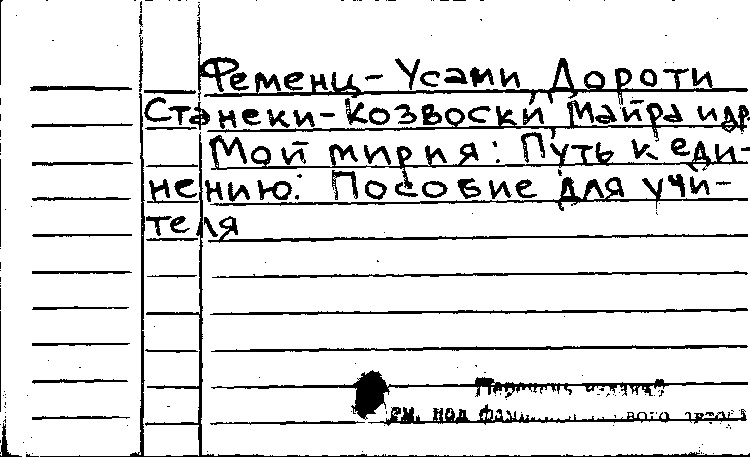 Феменц-Усами, Дороти
Станеки-Козвоски, Майра и др.
Мой мир и я: Путь к еди-
нению: Пособие для учи-
теля
Перечень изданий
см. под вого автора